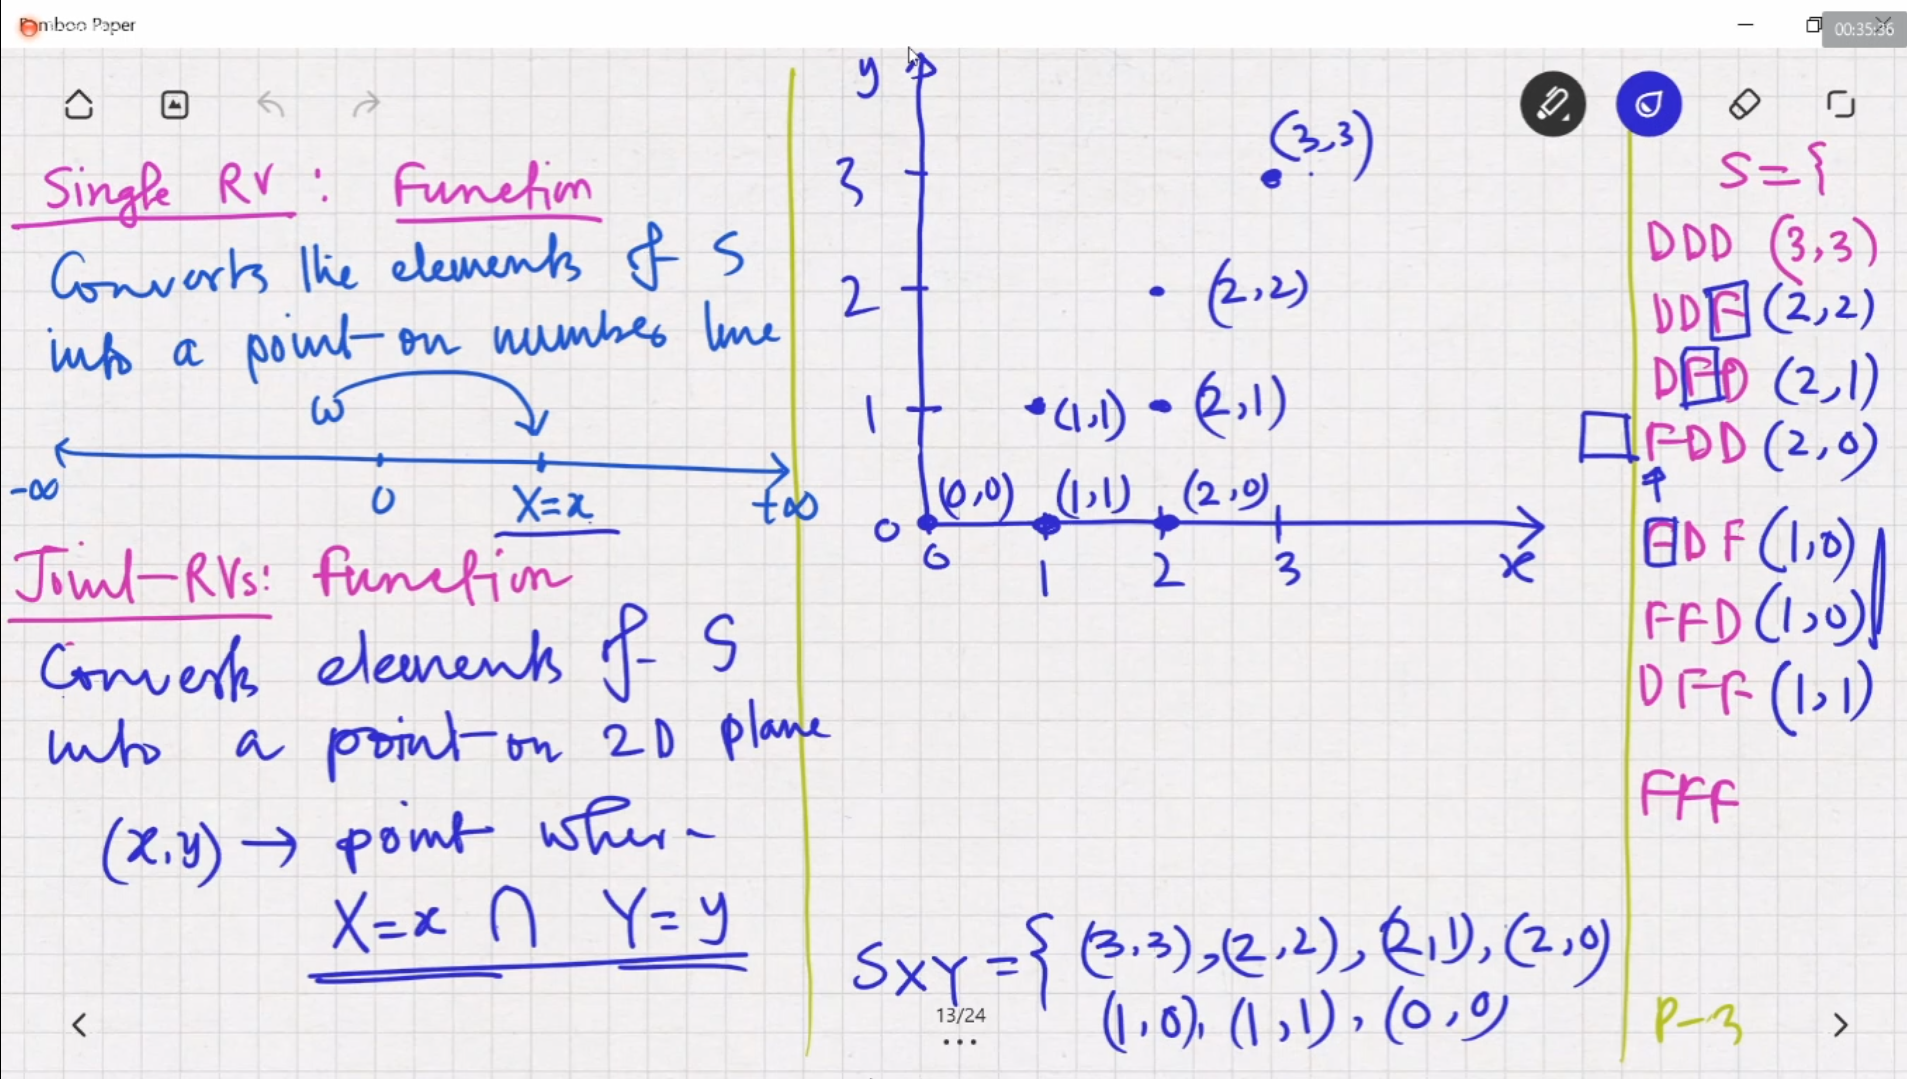 Bamboo Paper
00:35:36
Single RV : Function
Converts the elements of S
into a point on number line
ω
-∞ 0 X=x +∞
Joint-RVs: function
Converts elements of S
into a point on 2D plane
(x,y) → point wher
X=x ∩ Y=y
y
3
2
1
0
(3,3)
(2,2)
(1,1) (2,1)
(0,0) (1,1) (2,0)
0 1 2 3 x
SXY = { (3,3), (2,2), (2,1), (2,0)
(1,0), (1,1), (0,0)
13/24
S = {
DDD (3,3)
DDF (2,2)
DFD (2,1)
FDD (2,0)
FDF (1,0)
FFD (1,0)
DFF (1,1)
FFF
P-3